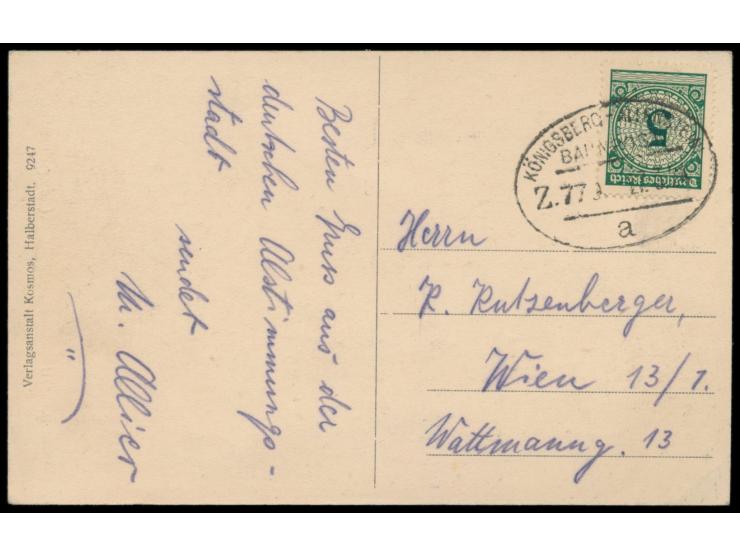 Besten Gruss aus der
deutschen Abstimmungs-
stadt
sendet
M. Allier
Verlagsanstalt Kosmos, Halberstadt. 9247
5
Deutsches Reich
KÖNIGSBERG
Z. 77
a
Herrn
R. Rutzenberger,
Wien 13/7.
Wattmanng. 13